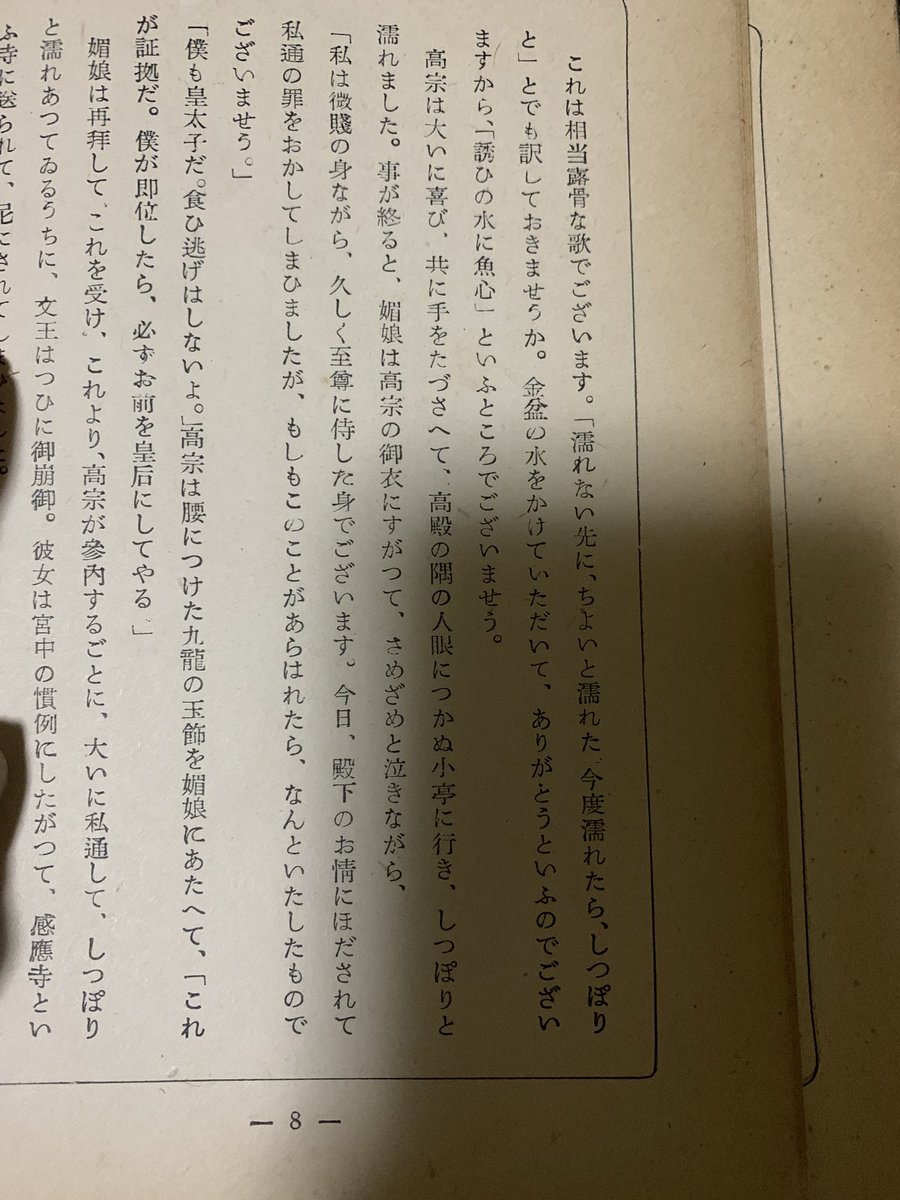 これは相当露骨な歌でございます。「濡れない先に、ちよいと濡れた 今度濡れたら、しつぽり
と」とでも訳しておきませうか。金盆の水をかけていただいて、ありがとうといふのでござい
ますから、「誘ひの水に魚心」といふところでございませう。
高宗は大いに喜び、共に手をたづさへて、高殿の隅の人眼につかぬ小亭に行き、しつぽりと
濡れました。事が終ると、媚娘は高宗の御衣にすがつて、さめざめと泣きながら、
「私は微賤の身ながら、久しく至尊に侍した身でございます。今日、殿下のお情にほだされて
私通の罪をおかしてしまひましたが、もしもこのことがあらはれたら、なんといたしたもので
ございませう。」
「僕も皇太子だ。食ひ逃げはしないよ。」高宗は腰につけた九龍の玉飾を媚娘にあたへて、「これ
が証拠だ。僕が即位したら、必ずお前を皇后にしてやる」
媚娘は再拜して、これを受け、これより、高宗が參內するごとに、大いに私通して、しつぽり
と濡れあつてゐるうちに、文王はつひに御崩御。彼女は宮中の慣例にしたがつて、感應寺とい
ふ寺に送られて、尼にされてしまひました。
— 8 —